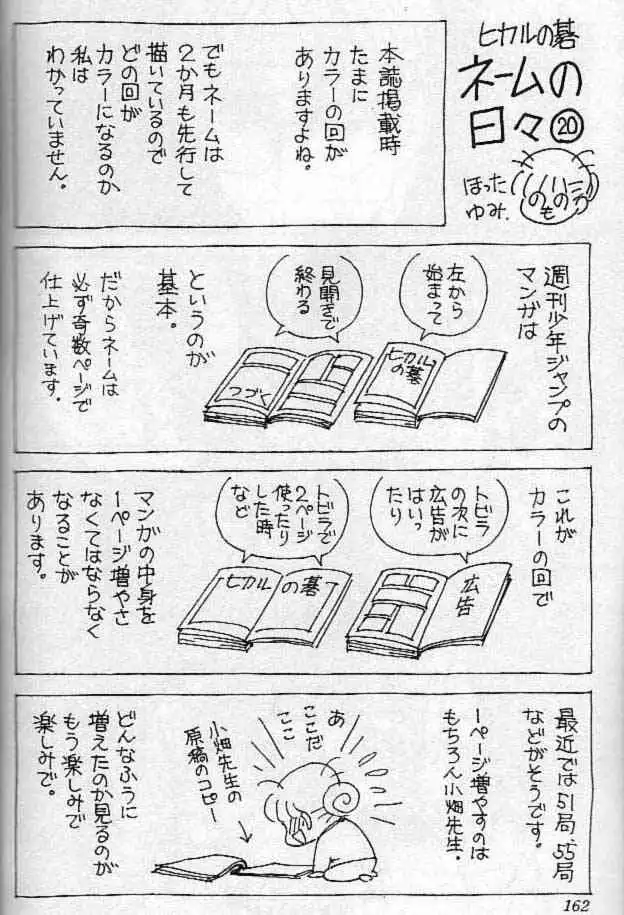 ヒカルの碁
ネームの
日々⑳
ほった
ゆみ
本誌掲載時
たまに
カラーの回が
ありますよね。
でもネームは
２か月も先行して
描いているので
どの回が
カラーになるのか
私は
わかっていません。
週刊少年ジャンプの
マンガは
左から
始まって
見開きで
終わる
ヒカル
の碁
つづく
というのが
基本。
だからネームは
必ず奇数ページで
仕上げています。
これが
カラーの回で
トビラ
の次に
広告が
はいっ
たり
トビラで
２ページ
使ったり
した時
など
広告
ヒカル
の碁
マンガの中身を
１ページ増やさ
なくてはならなく
なることが
あります。
最近では51局、55局
などがそうです。
１ページ増やすのは
もちろん小畑先生。
あ
ここだ
ここ
小畑先生の
原稿のコピー
どんなふうに
増えたのか見るのが
もう楽しみで
楽しみで。
162